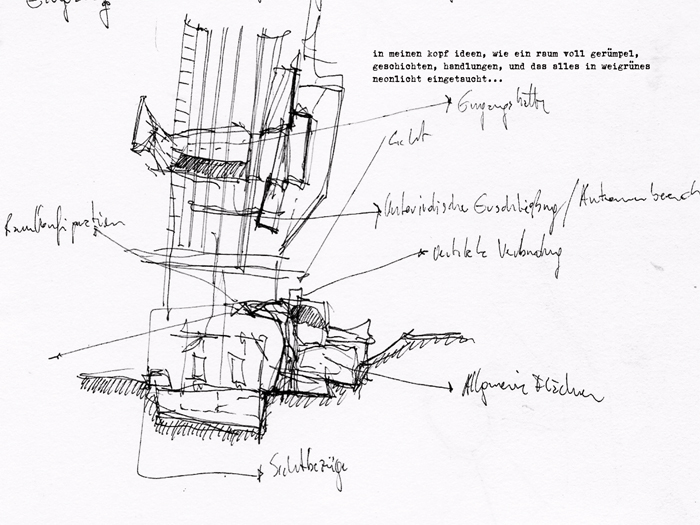 in meinen kopf ideen, wie ein raum voll gerümpel,
geschichten, handlungen, und das alles in weigrünes
neonlicht eingetsucht...
Eingangshalle
Licht
Unterirdische Erschließung /
Raumkonfiguration
vertikale Verbindung
Allgemeine Flächen
Sichtbezüge